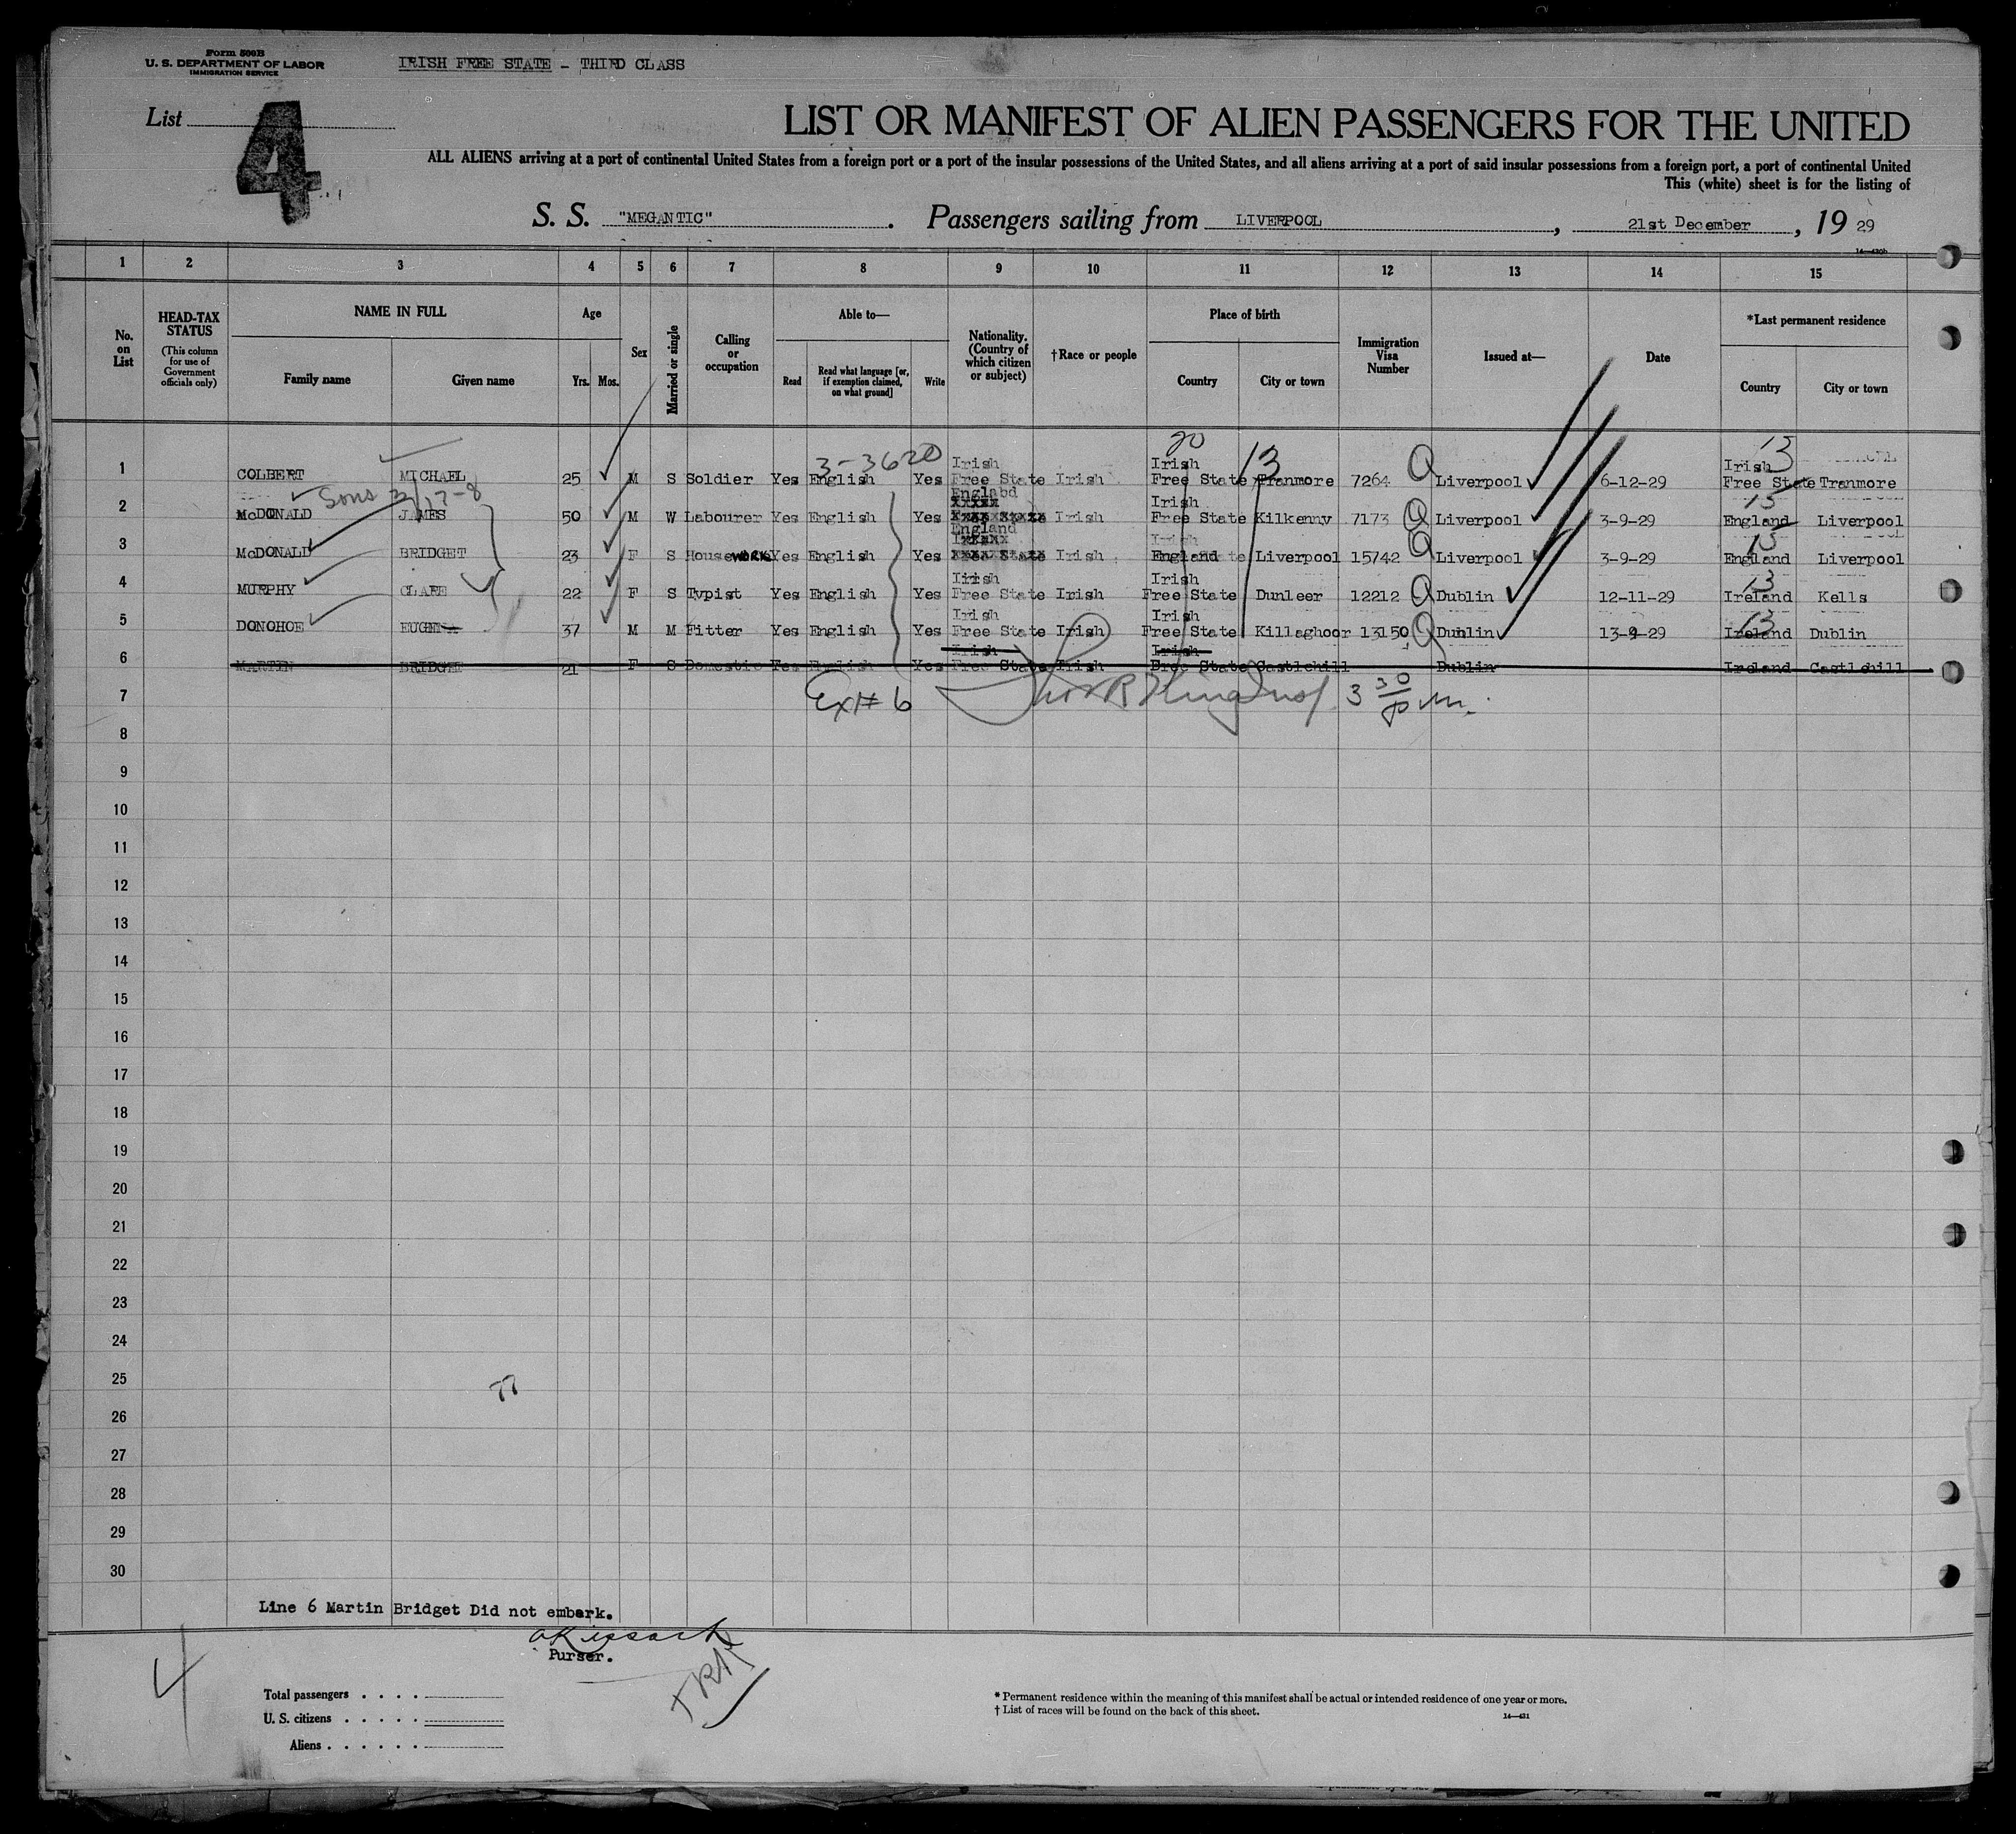 Form 500B
U. S. DEPARTMENT OF LABOR
IMMIGRATION SERVICE
IRISH FREE STATE - THIRD CLASS
List 4
LIST OR MANIFEST OF ALIEN PASSENGERS FOR THE UNITED
ALL ALIENS arriving at a port of continental United States from a foreign port or a port of the insular possessions of the United States, and all aliens arriving at a port of said insular possessions from a foreign port, a port of continental United
This (white) sheet is for the listing of
S. S. "MEGANTIC". Passengers sailing from LIVERPOOL, 21st December, 19 29
1 2 3 4 5 6 7 8 9 10 11 12 13 14 15
No. on List
HEAD-TAX STATUS (This column for use of Government officials only)
NAME IN FULL Family name Given name
Age Yrs. Mos.
Sex
Married or single
Calling or occupation
Able to— Read Read what language [or, if exemption claimed, on what ground] Write
Nationality. (Country of which citizen or subject)
†Race or people
Place of birth Country City or town
Immigration Visa Number
Issued at—
Date
*Last permanent residence Country City or town
3-3620 20 13 13
1 COLBERT MICHAEL 25 M S Soldier Yes English Yes Irish Free State Irish Irish Free State Tranmore 7264 Liverpool 6-12-29 Irish Free State Tranmore
Sons
2 McDONALD JAMES 50 M W Labourer Yes English Yes Englabd Irish Irish Free State Kilkenny 7173 Liverpool 3-9-29 England Liverpool
3 McDONALD BRIDGET 23 F S HouseWORK Yes English Yes England Irish England Liverpool 15742 Liverpool 3-9-29 England Liverpool
4 MURPHY CLARE 22 F S Typist Yes English Yes Irish Free State Irish Irish Free State Dunleer 12212 Dublin 12-11-29 Ireland Kells
5 DONOHOE 37 M M Fitter Yes English Yes Irish Free State Irish Irish Free State Killaghoor 13150 Dublin 13-9-29 Ireland Dublin
6 MARTIN BRIDGET 21 F S Domestic Yes English Yes Irish Free State Irish Irish Free State Castlehill Dublin Ireland Castlehill
7 Ex # 6 3 30 p m.
8
9
10
11
12
13
14
15
16
17
18
19
20
21
22
23
24
25
26
27
28
29
30
Line 6 Martin Bridget Did not embark.
Purser.
4
Total passengers
U. S. citizens
Aliens
* Permanent residence within the meaning of this manifest shall be actual or intended residence of one year or more.
† List of races will be found on the back of this sheet.
14—431